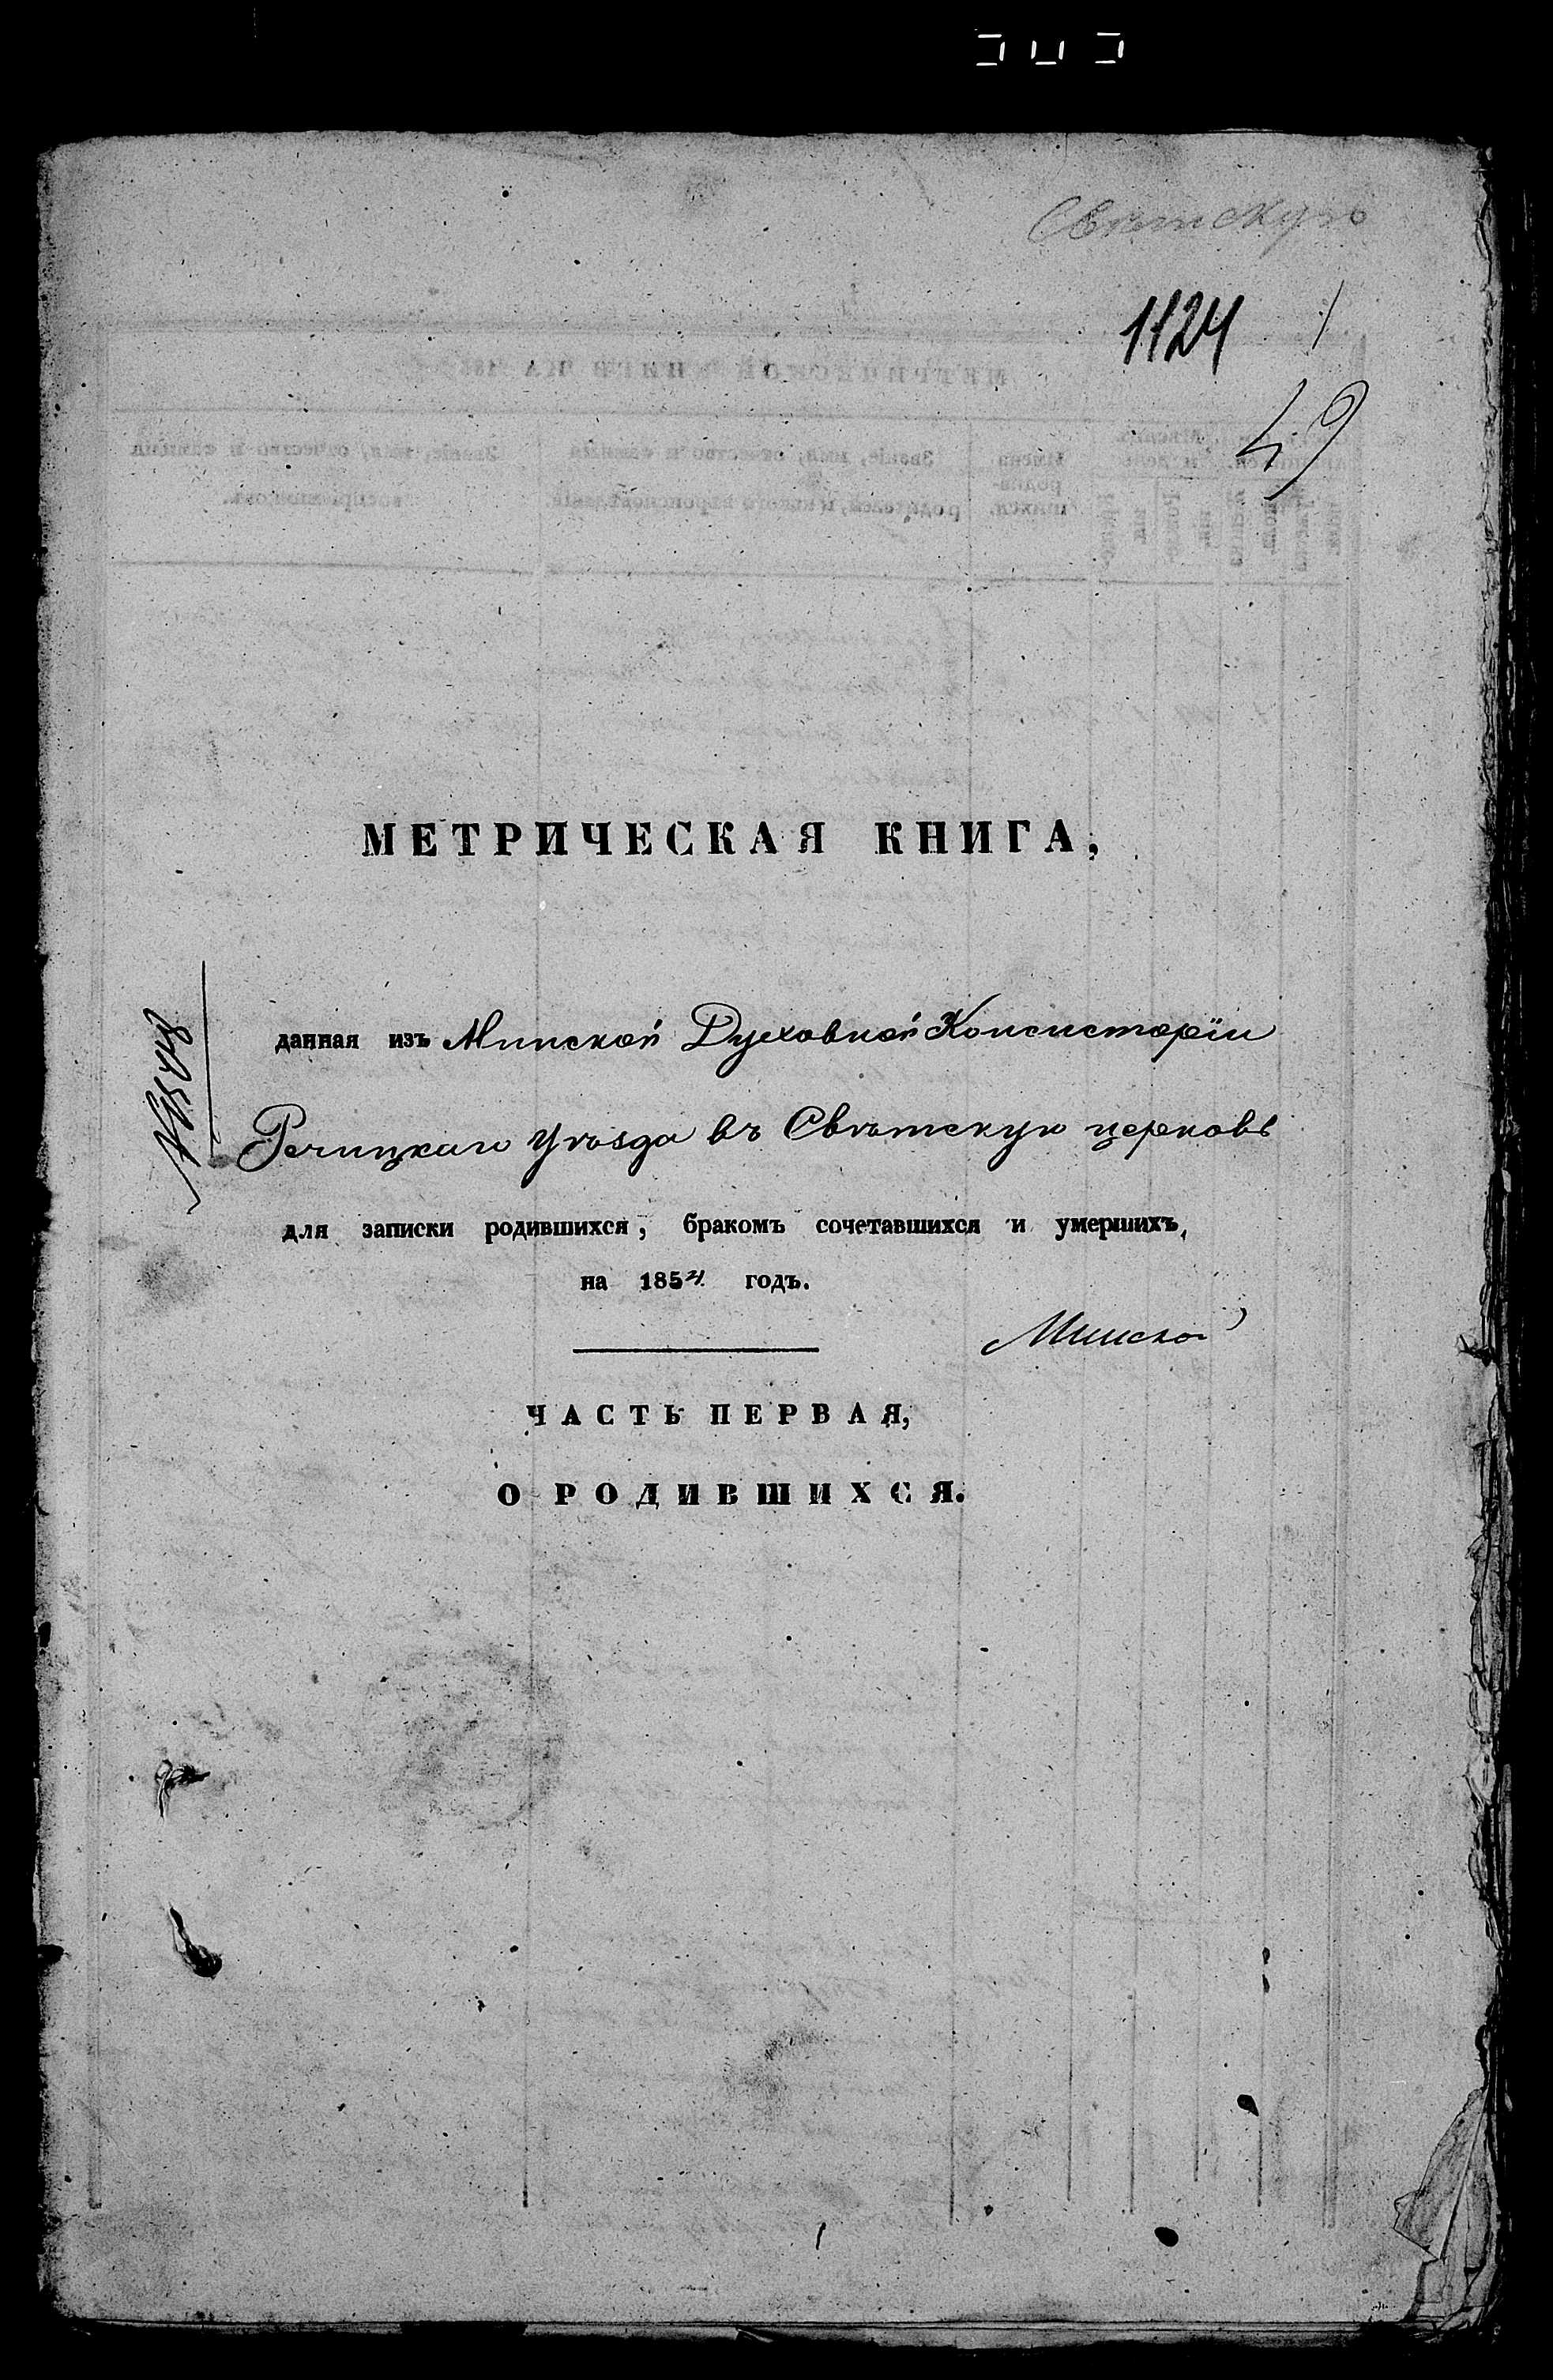 Свѣтскую
1124
49
МЕТРИЧЕСКАЯ КНИГА,
данная изъ Минской Духовной Консисторіи
Речицкаго Уѣзда въ Свѣтскую церковь
для записки родившихся, бракомъ сочетавшихся и умершихъ,
на 1854. годъ.
Минской
ЧАСТЬ ПЕРВАЯ,
О РОДИВШИХСЯ.